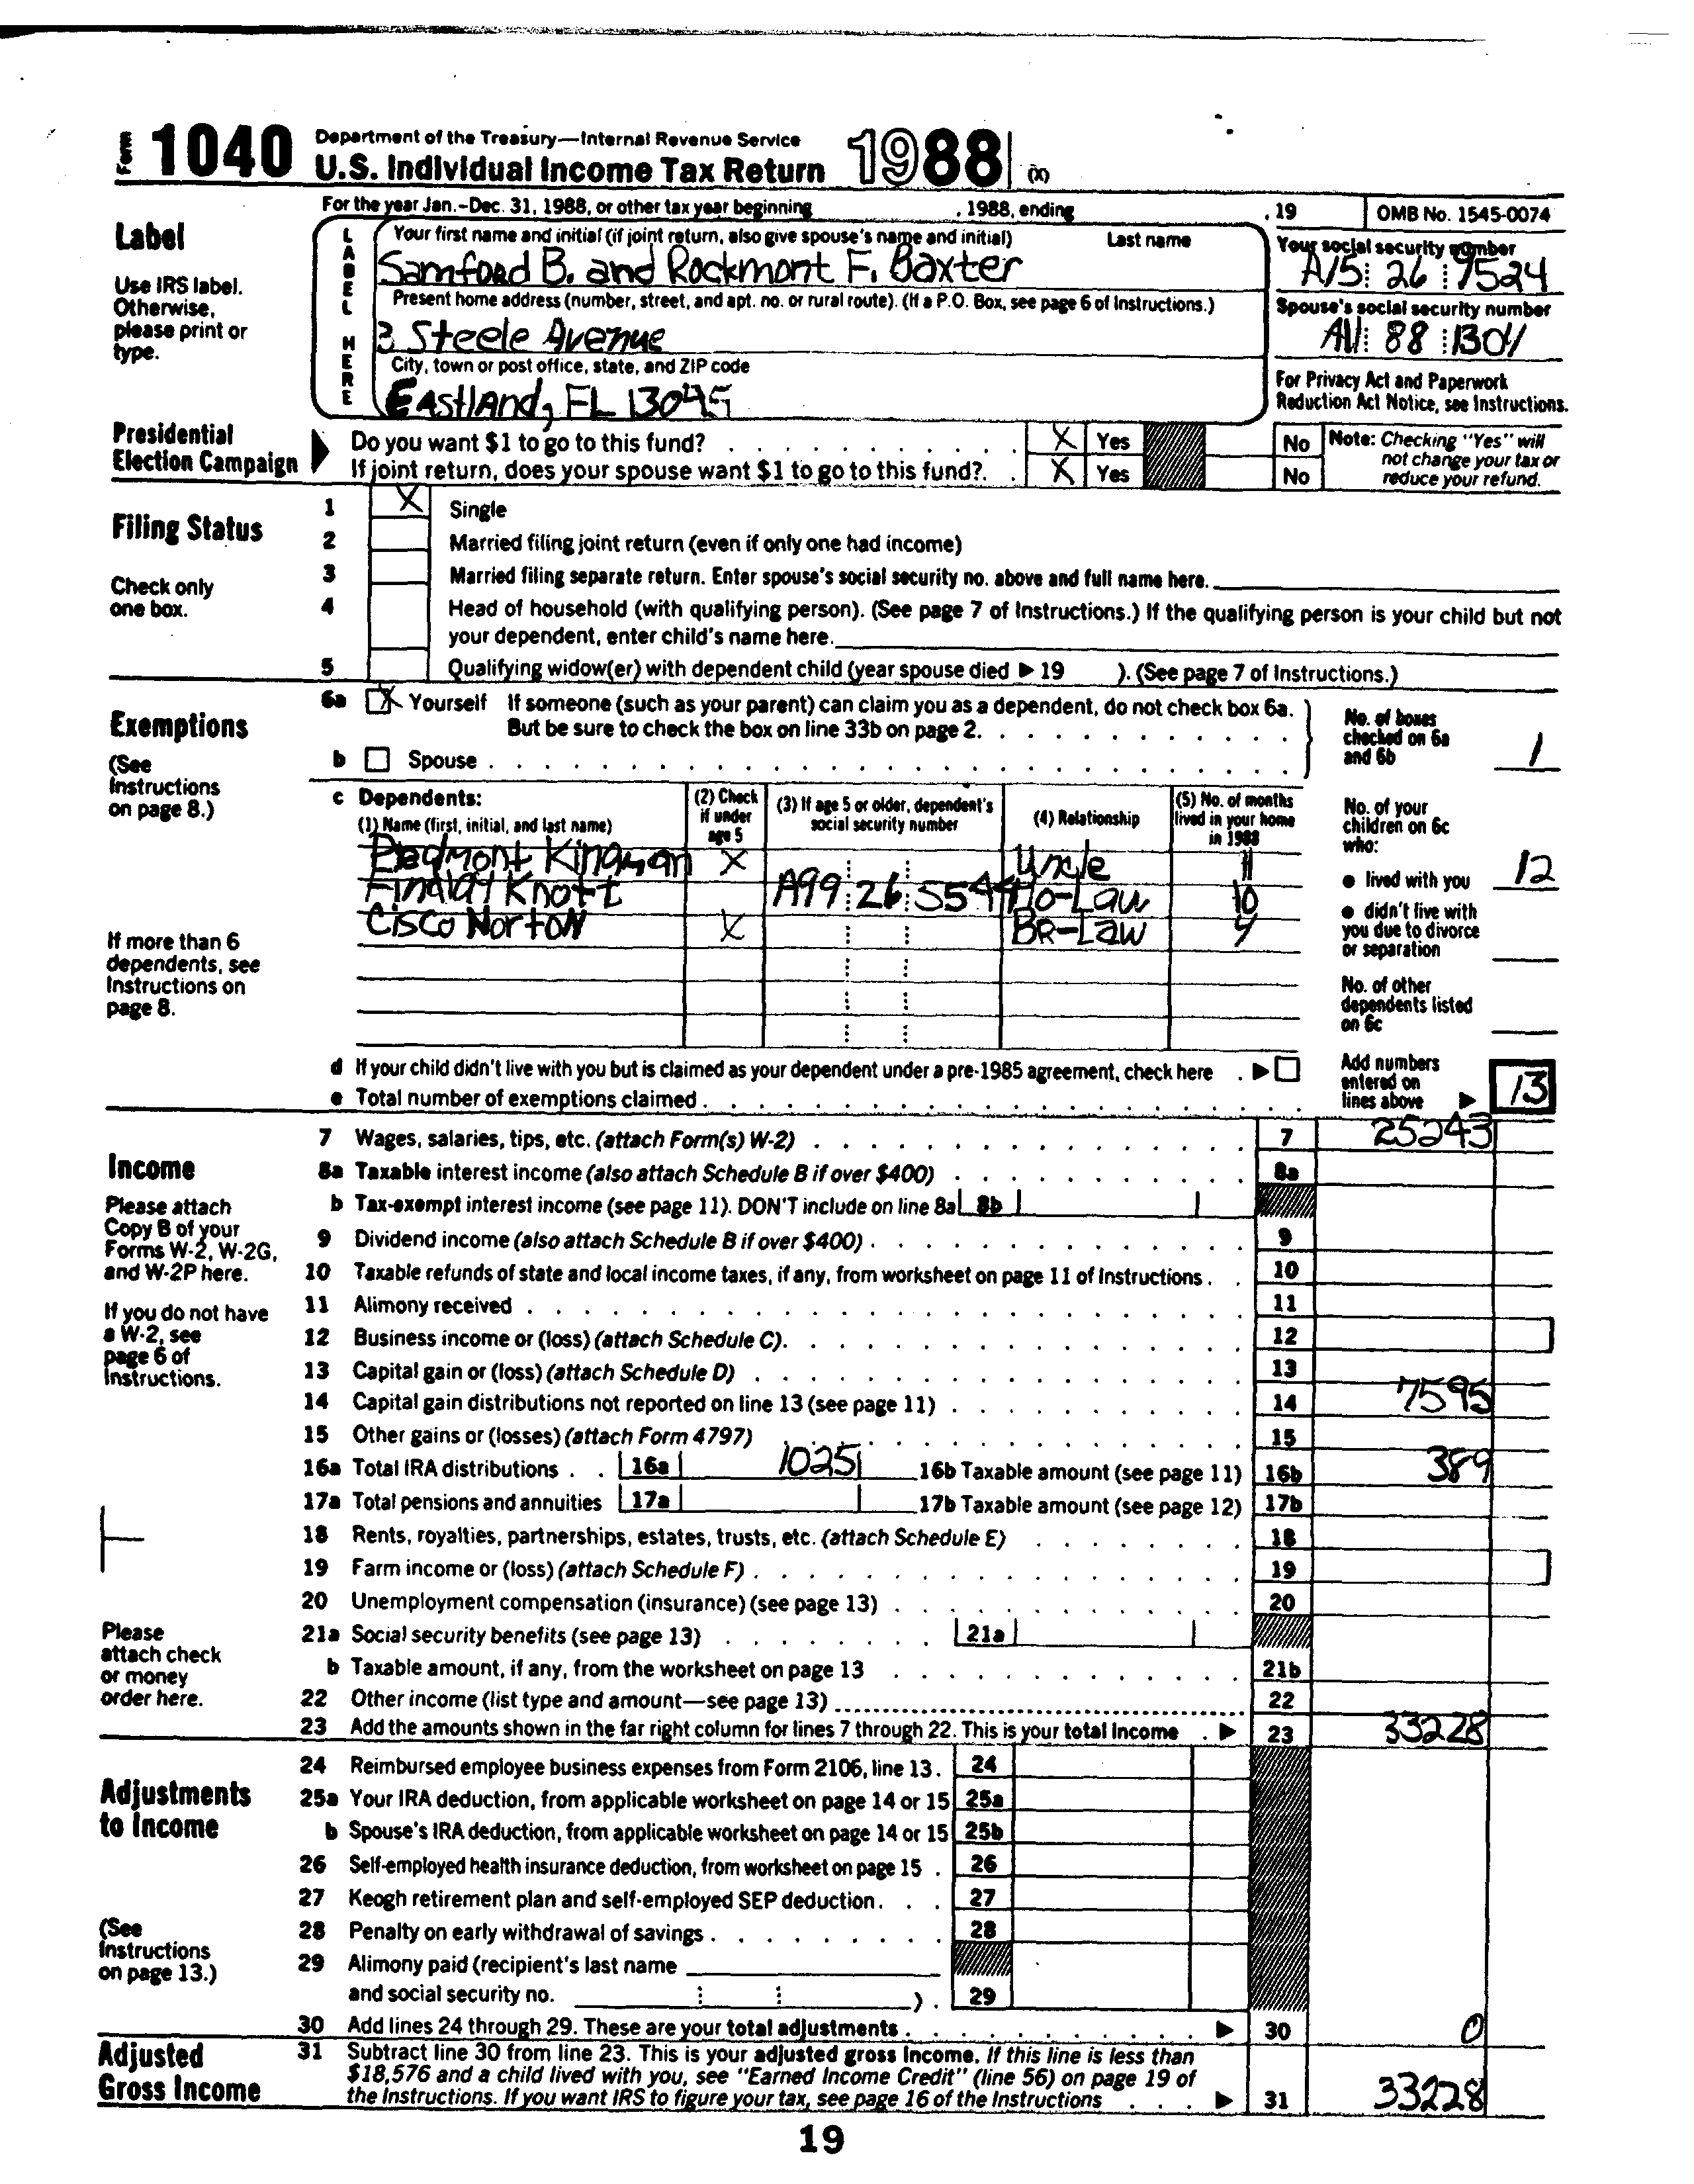 Form 1040 Department of the Treasury—Internal Revenue Service
U.S. Individual Income Tax Return 1988 (X)
For the year Jan.-Dec. 31, 1988, or other tax year beginning , 1988, ending , 19 OMB No. 1545-0074
Label
Use IRS label.
Otherwise,
please print or
type.
LABEL HERE
Your first name and initial (if joint return, also give spouse's name and initial) Last name
Samford B. and Rockmont F. Baxter
Present home address (number, street, and apt. no. or rural route). (If a P.O. Box, see page 6 of Instructions.)
3 Steele Avenue
City, town or post office, state, and ZIP code
Eastland, FL 13045
Your social security number
A15 26 9524
Spouse's social security number
88 1304
For Privacy Act and Paperwork
Reduction Act Notice, see Instructions.
Presidential
Election Campaign
Do you want $1 to go to this fund? X Yes No
If joint return, does your spouse want $1 to go to this fund? X Yes No
Note: Checking "Yes" will
not change your tax or
reduce your refund.
Filing Status
Check only
one box.
1 X Single
2 Married filing joint return (even if only one had income)
3 Married filing separate return. Enter spouse's social security no. above and full name here.
4 Head of household (with qualifying person). (See page 7 of Instructions.) If the qualifying person is your child but not
your dependent, enter child's name here.
5 Qualifying widow(er) with dependent child (year spouse died ▶ 19 ). (See page 7 of Instructions.)
Exemptions
(See
Instructions
on page 8.)
6a X Yourself If someone (such as your parent) can claim you as a dependent, do not check box 6a.
But be sure to check the box on line 33b on page 2.
b Spouse
No. of boxes
checked on 6a
and 6b 1
c Dependents:
(1) Name (first, initial, and last name)
(2) Check
if under
age 5
(3) If age 5 or older, dependent's
social security number
(4) Relationship
(5) No. of months
lived in your home
in 1988
Piedmont Kingman X Uncle 11
Findlay Knott A99 26 5544 Mo-Law 10
Cisco Norton X BR-Law 4
If more than 6
dependents, see
Instructions on
page 8.
No. of your
children on 6c
who:
● lived with you 12
● didn't live with
you due to divorce
or separation
No. of other
dependents listed
on 6c
d If your child didn't live with you but is claimed as your dependent under a pre-1985 agreement, check here ▶
e Total number of exemptions claimed
Add numbers
entered on
lines above ▶ 13
Income
Please attach
Copy B of your
Forms W-2, W-2G,
and W-2P here.
If you do not have
a W-2, see
page 6 of
Instructions.
Please
attach check
or money
order here.
7 Wages, salaries, tips, etc. (attach Form(s) W-2) 7 25243
8a Taxable interest income (also attach Schedule B if over $400) 8a
b Tax-exempt interest income (see page 11). DON'T include on line 8a 8b
9 Dividend income (also attach Schedule B if over $400) 9
10 Taxable refunds of state and local income taxes, if any, from worksheet on page 11 of Instructions 10
11 Alimony received 11
12 Business income or (loss) (attach Schedule C) 12
13 Capital gain or (loss) (attach Schedule D) 13
14 Capital gain distributions not reported on line 13 (see page 11) 14 7595
15 Other gains or (losses) (attach Form 4797) 15
16a Total IRA distributions 16a 1025 16b Taxable amount (see page 11) 16b 389
17a Total pensions and annuities 17a 17b Taxable amount (see page 12) 17b
18 Rents, royalties, partnerships, estates, trusts, etc. (attach Schedule E) 18
19 Farm income or (loss) (attach Schedule F) 19
20 Unemployment compensation (insurance) (see page 13) 20
21a Social security benefits (see page 13) 21a
b Taxable amount, if any, from the worksheet on page 13 21b
22 Other income (list type and amount—see page 13) 22
23 Add the amounts shown in the far right column for lines 7 through 22. This is your total income ▶ 23 33228
Adjustments
to Income
(See
Instructions
on page 13.)
24 Reimbursed employee business expenses from Form 2106, line 13. 24
25a Your IRA deduction, from applicable worksheet on page 14 or 15 25a
b Spouse's IRA deduction, from applicable worksheet on page 14 or 15 25b
26 Self-employed health insurance deduction, from worksheet on page 15 26
27 Keogh retirement plan and self-employed SEP deduction 27
28 Penalty on early withdrawal of savings 28
29 Alimony paid (recipient's last name
and social security no. ) 29
30 Add lines 24 through 29. These are your total adjustments ▶ 30 0
Adjusted
Gross Income
31 Subtract line 30 from line 23. This is your adjusted gross income. If this line is less than
$18,576 and a child lived with you, see "Earned Income Credit" (line 56) on page 19 of
the Instructions. If you want IRS to figure your tax, see page 16 of the Instructions ▶ 31 33228
19